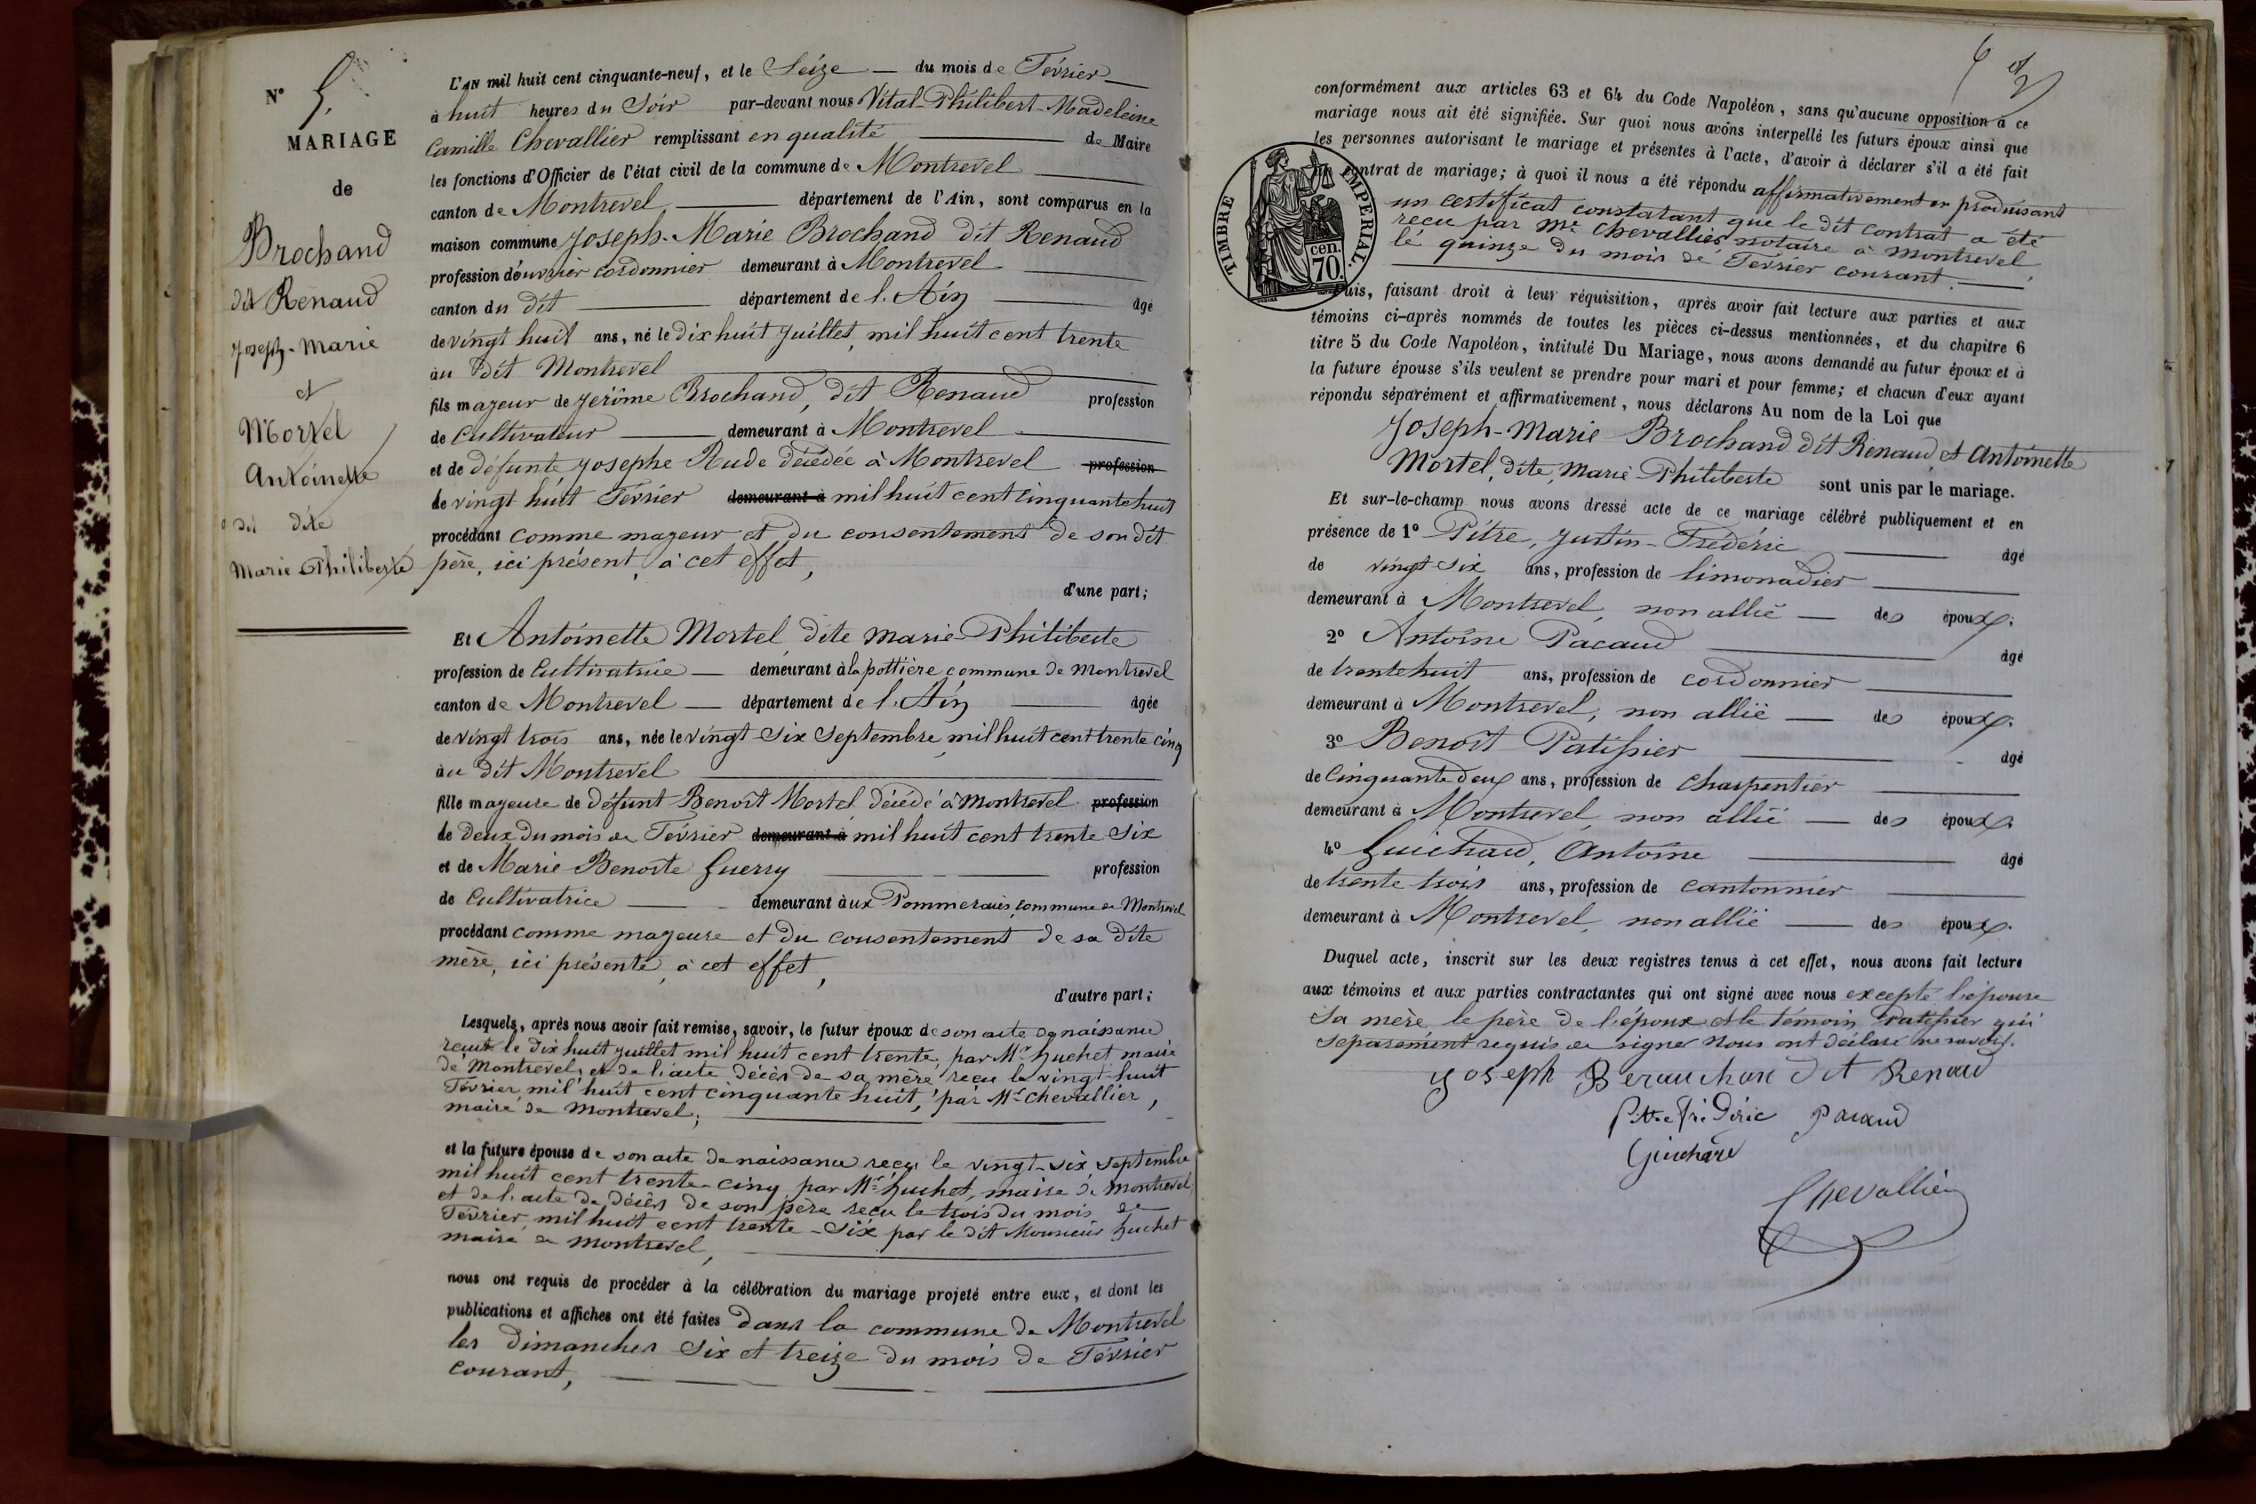 N° 5.
MARIAGE
de
Brochand
dit Renaud
Joseph-Marie
et
Mortel
Antoinette
dite
Marie Philiberte
L'AN mil huit cent cinquante-neuf, et le Seize du mois de Février
à huit heures du Soir par-devant nous Vital-Philibert-Madeleine
Camille Chevallier remplissant en qualité de Maire
les fonctions d'Officier de l'état civil de la commune de Montrevel
canton de Montrevel département de l'Ain, sont comparus en la
maison commune Joseph-Marie Brochand dit Renaud
profession d'ouvrier cordonnier demeurant à Montrevel
canton du dit département de l'Ain âgé
de vingt huit ans, né le dix huit Juillet, mil huit cent trente
au dit Montrevel
fils majeur de Jérôme Brochand, dit Renaud profession
de Cultivateur demeurant à Montrevel
et de défunte Josephe Rude décédée à Montrevel profession
de vingt huit Février demeurant à mil huit cent cinquante huit
procédant comme majeur et du consentement de son dit
père, ici présent, à cet effet,
d'une part;
Et Antoinette Mortel, dite Marie-Philiberte
profession de Cultivatrice demeurant à la pottière commune de Montrevel
canton de Montrevel département de l'Ain âgée
de vingt trois ans, née le vingt-six Septembre, mil huit cent trente cinq
au dit Montrevel
fille majeure de défunt Benoit Mortel décédé à Montrevel profession
de deux du mois de Février demeurant à mil huit cent trente Six
et de Marie Benoite Guerry profession
de Cultivatrice demeurant aux Pommerais, commune de Montrevel
procédant comme majeure et du consentement de sa dite
mère, ici présente, à cet effet,
d'autre part;
Lesquels, après nous avoir fait remise, savoir, le futur époux de son acte de naissance
reçue le dix huit juillet mil huit cent trente, par Mr huchet maire
de Montrevel; et de l'acte décès de sa mère reçu le vingt-huit
Février, mil huit cent cinquante huit, par Mr chevallier,
maire de Montrevel;
et la future épouse de son acte de naissance reçu le vingt-six septembre
mil huit cent trente-cinq, par Mr huchet, maire de Montrevel,
et de l'acte de décès de son père reçu le trois du mois de
Février, mil huit cent trente-Six par le dit Monsieur huchet
maire de Montrevel,
nous ont requis de procéder à la célébration du mariage projeté entre eux, et dont les
publications et affiches ont été faites dans la commune de Montrevel
les dimanches Six et treize du mois de Février
courant,
conformément aux articles 63 et 64 du Code Napoléon, sans qu'aucune opposition à ce
mariage nous ait été signifiée. Sur quoi nous avons interpellé les futurs époux ainsi que
les personnes autorisant le mariage et présentes à l'acte, d'avoir à déclarer s'il a été fait
contrat de mariage; à quoi il nous a été répondu affirmativement en produisant
un certificat constatant que le dit contrat a été
reçu par Mr Chevallier, notaire à Montrevel,
le quinze du mois de Février courant.
TIMBRE IMPERIAL.
cen.
70.
Puis, faisant droit à leur réquisition, après avoir fait lecture aux parties et aux
témoins ci-après nommés de toutes les pièces ci-dessus mentionnées, et du chapitre 6
titre 5 du Code Napoléon, intitulé Du Mariage, nous avons demandé au futur époux et à
la future épouse s'ils veulent se prendre pour mari et pour femme; et chacun d'eux ayant
répondu séparément et affirmativement, nous déclarons Au nom de la Loi que
Joseph-Marie Brochand dit Renaud, et Antoinette
Mortel, dite, Marie Philiberte sont unis par le mariage.
Et sur-le-champ nous avons dressé acte de ce mariage célébré publiquement et en
présence de 1° Pitre, Justin-Frédéric âgé
de vingt six ans, profession de limonadier
demeurant à Montrevel, non allié des époux;
2° Antoine Pacaud âgé
de trente huit ans, profession de cordonnier
demeurant à Montrevel, non allié des époux;
3° Benoit Patissier âgé
de Cinquante deux ans, profession de charpentier
demeurant à Montrevel, non allié des époux.
4° Guichard, Antoine âgé
de trente trois ans, profession de cantonnier
demeurant à Montrevel, non allié des époux.
Duquel acte, inscrit sur les deux registres tenus à cet effet, nous avons fait lecture
aux témoins et aux parties contractantes qui ont signé avec nous excepté l'épouse
Sa mère, le père de l'époux et le témoin Patissier qui
Séparément requis de signer Nous ont déclaré ne savoir.
Joseph Berauchan dit Renaud
Pitre Frédéric Pacaud
Guichard
Chevallier